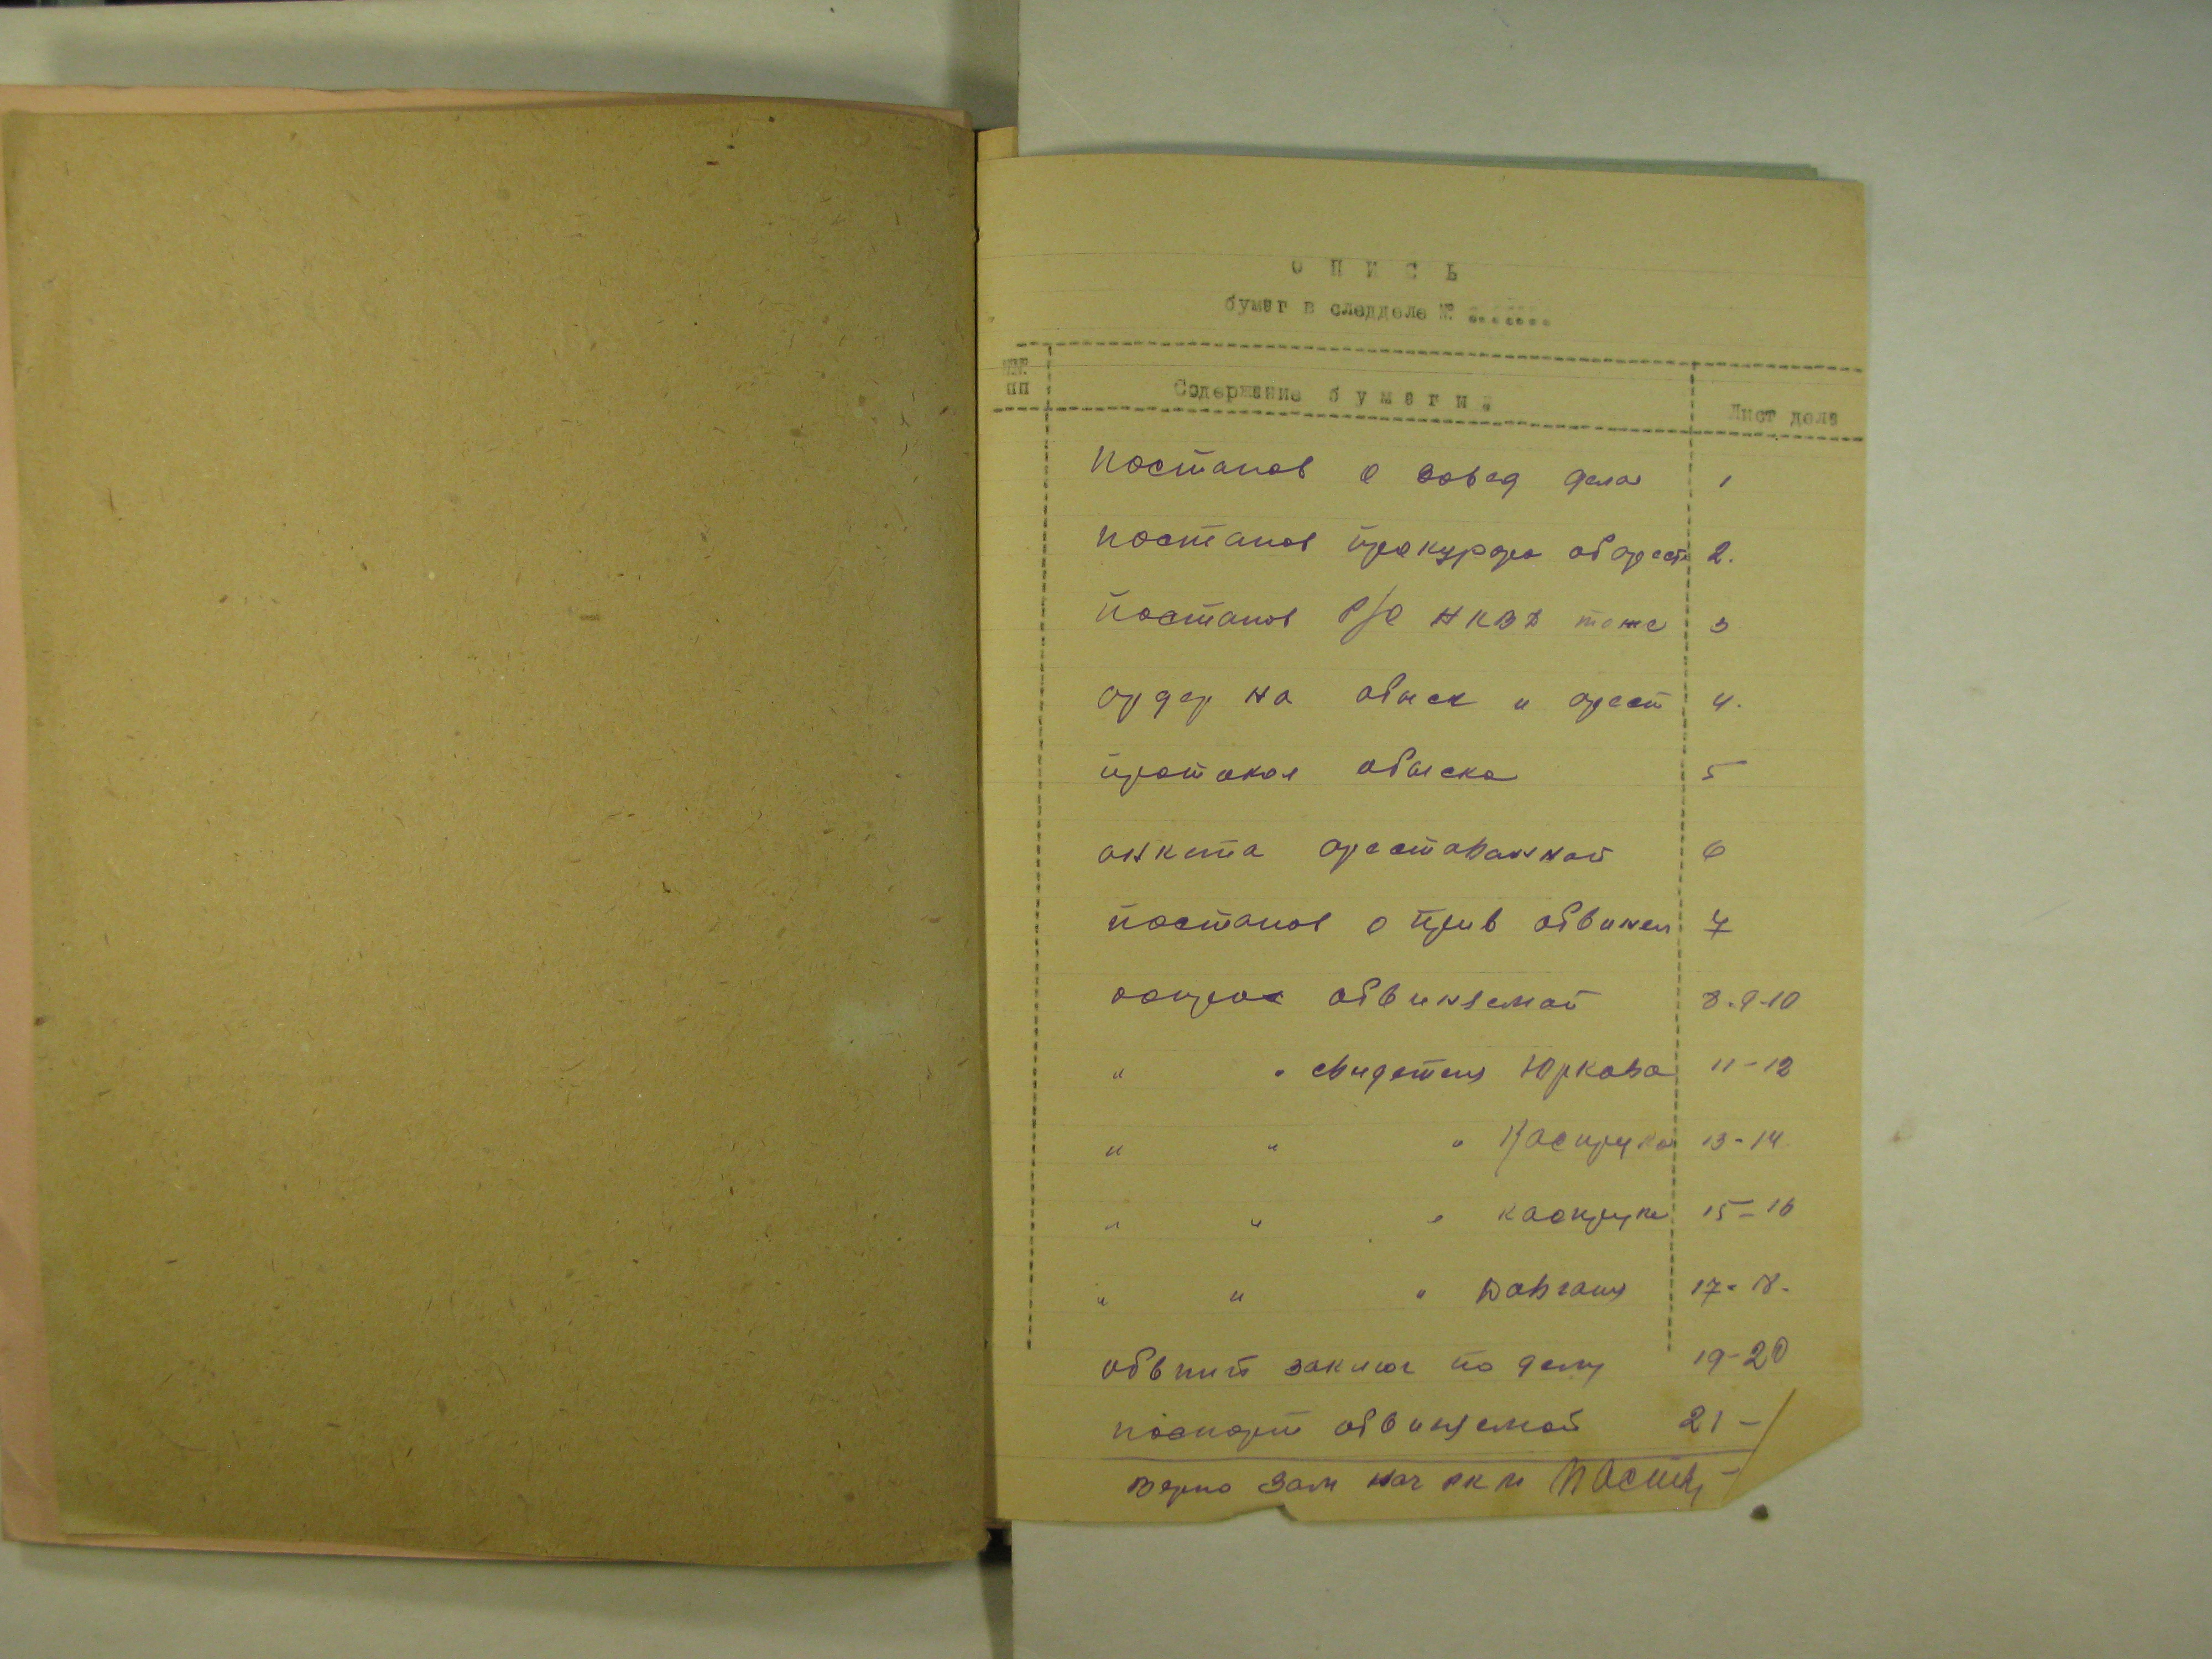 О П И С Ь
бумаг в следделе № .......
№№ Содержание б у м а г и. Лист дела
пп
Постанов о завед дела 1
постанов прокурора об арест 2.
Постанов Р/О НКВД тоже 3
ордер на обыск и арест 4.
протокол обыска 5
анкета арестованной 6
постанов о прив обвинен 7
допрос обвиняемой 8-9-10
" " свидетеля Юркова 11-12
" " " Каспрука 13-14
" " " Каспрук 15-16
" " " Довганя 17-18.
обвинит заключ по делу 19-20
паспорт обвиняемой 21-
Верно Зам нач РКМ